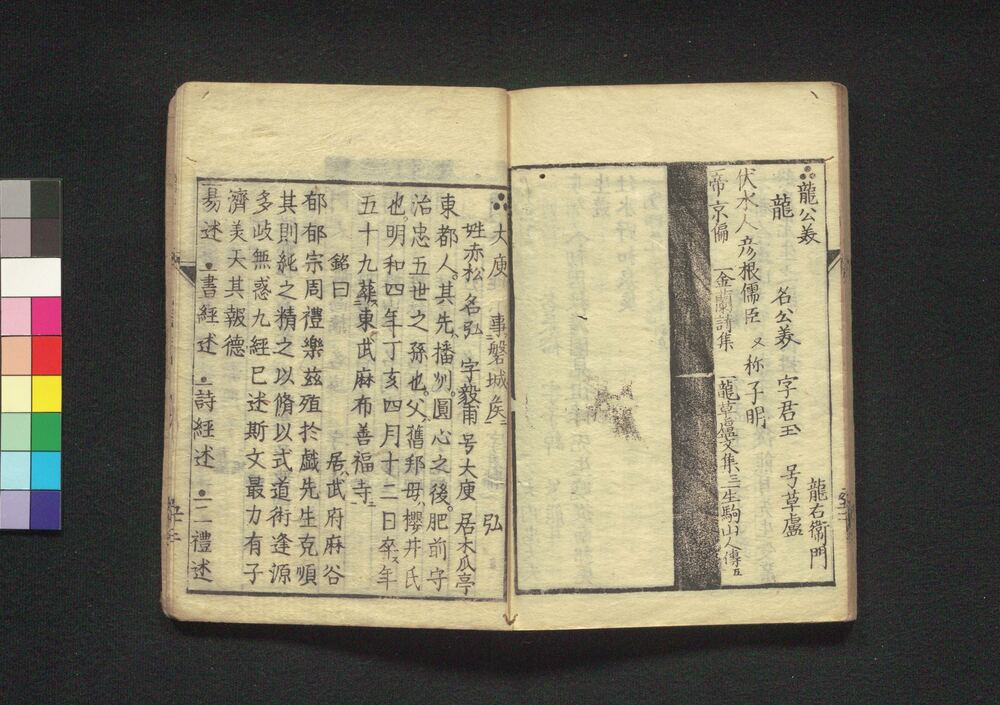 龍公美
龍 名公美 字君玉 号草盧 龍右衛門
伏水人彦根儒臣 又称子明
帝京偏 金蘭詩集 龍草盧文集三 生駒山人傳五
大庾 事磐城侯 弘
姓赤松 名弘 字毅甫 号大庾 居木瓜亭
東都人。其先、播州。圓心之後。肥前守
治忠五世之孫也。父、舊邦毋、櫻井氏
也。明和四年丁亥四月十二日卒年
五十九葬東武麻布善福寺
銘曰 居武府麻谷
郁郁宗周禮樂茲殖於戲先生克順
其則純之精之以脩以式道術逢源
多岐無惑九經已述斯文最力有子
濟美天其報德
易述 書經述 詩經述 二禮述